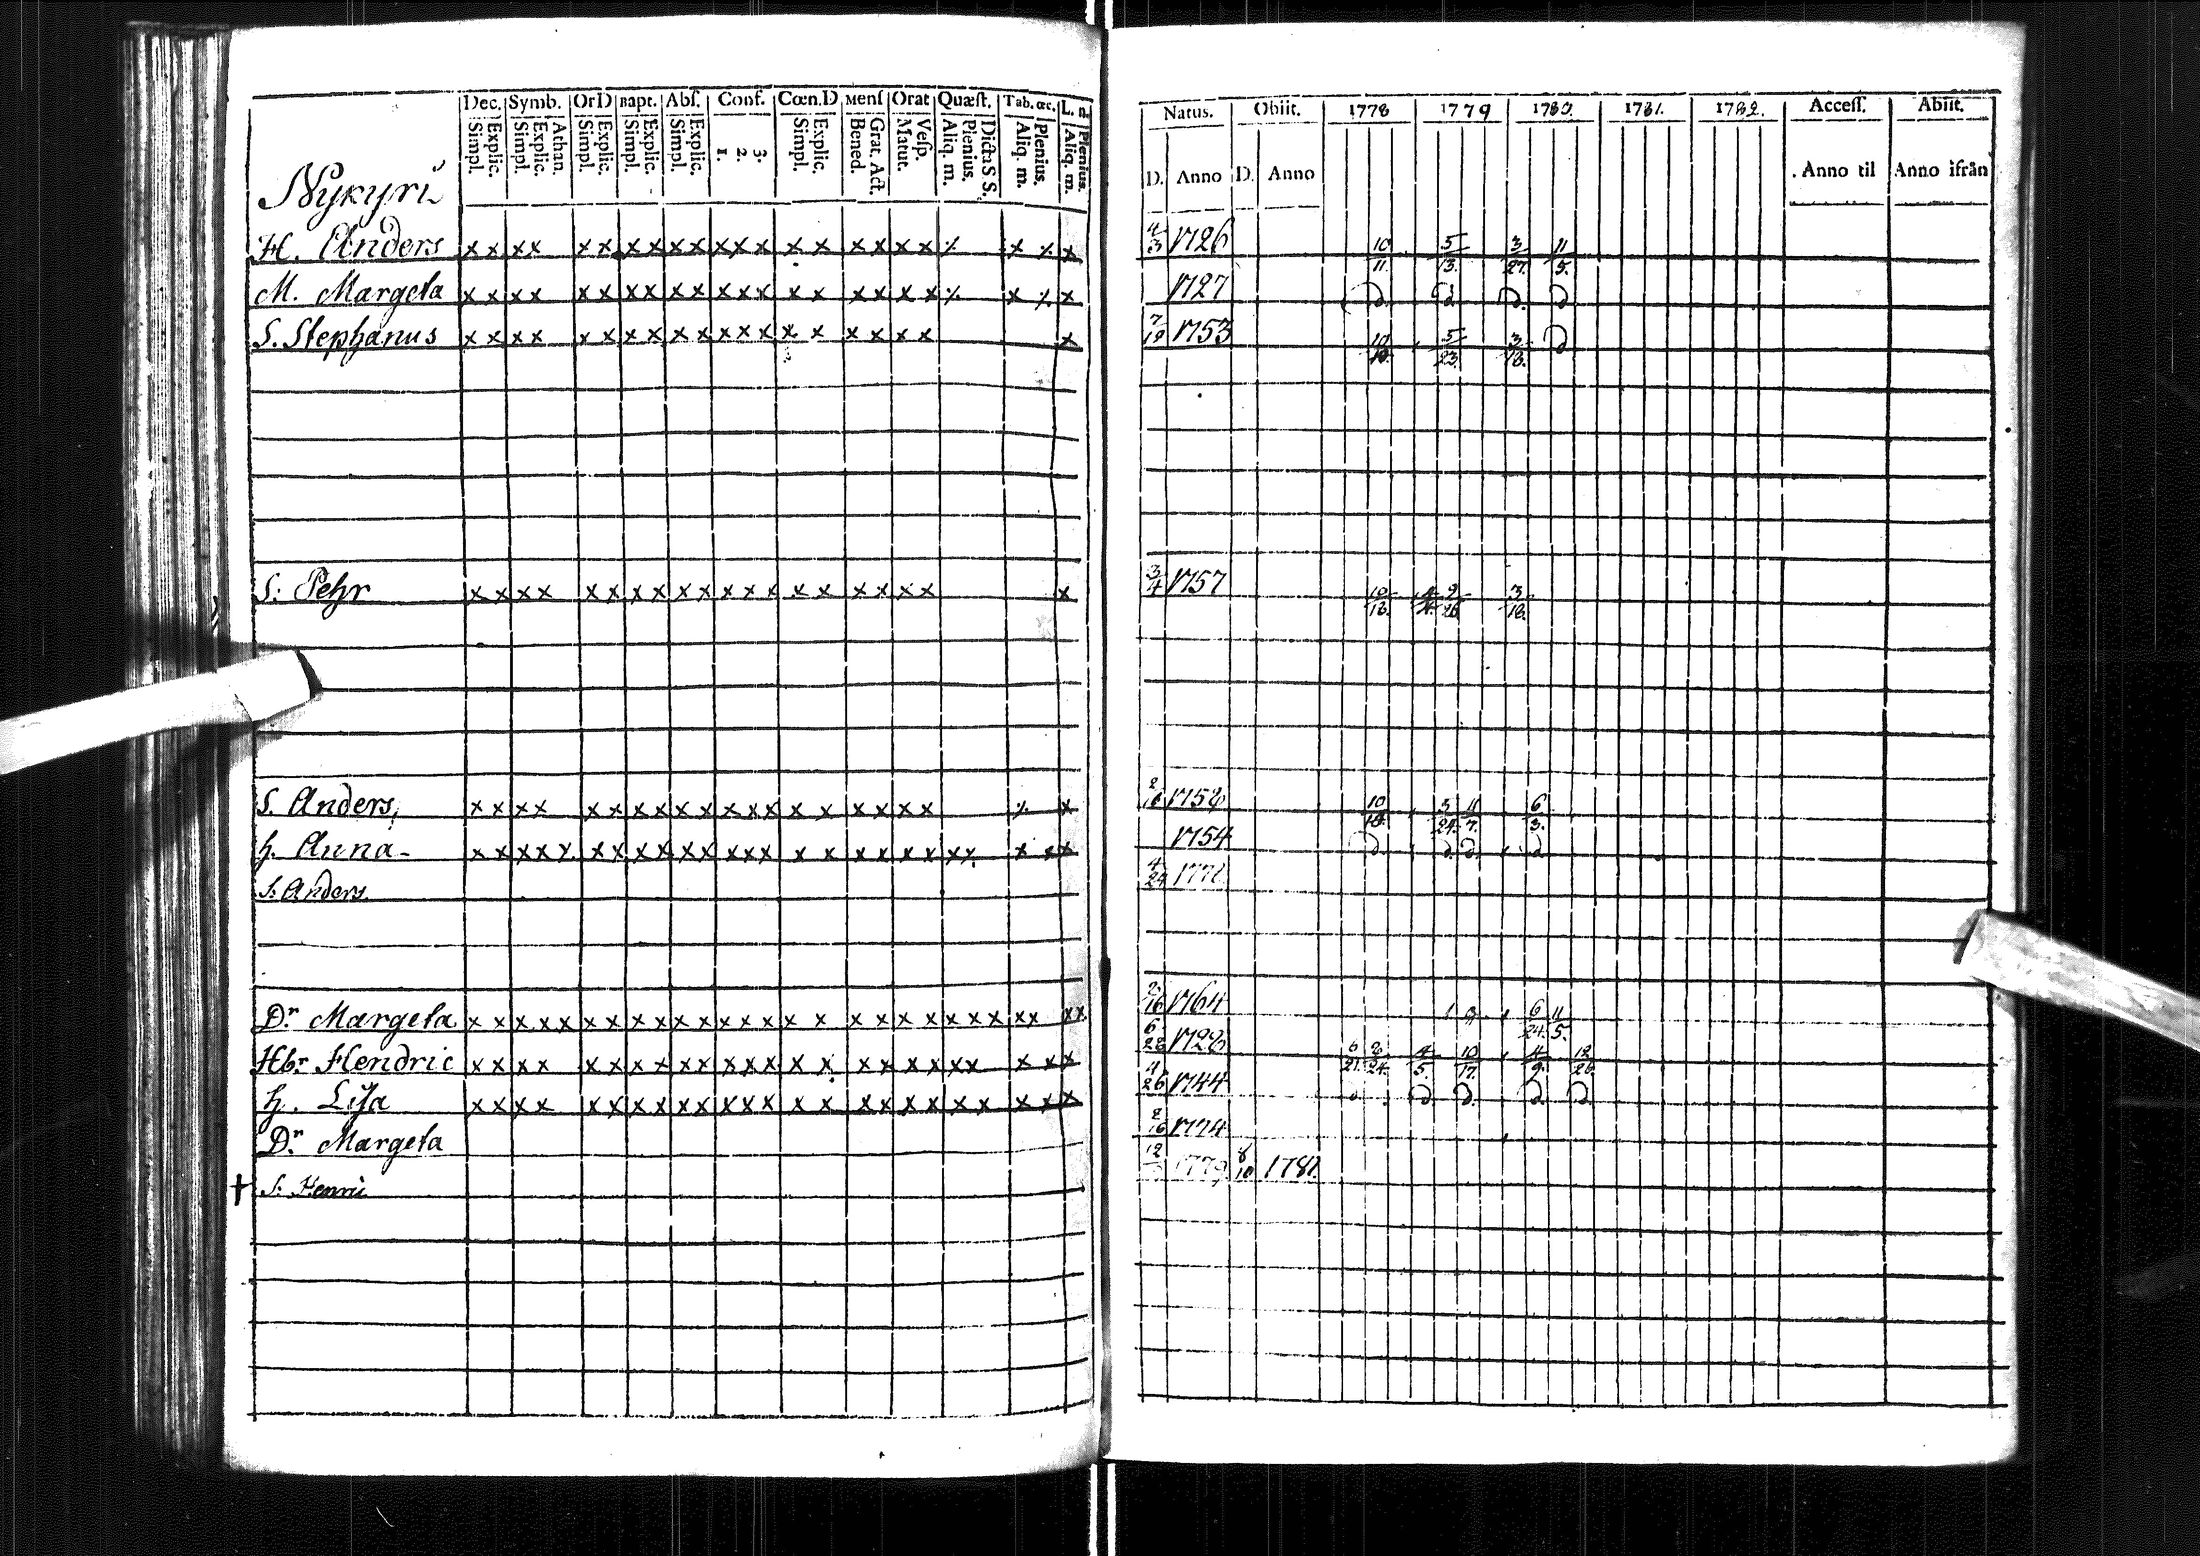 Dec. Symb. OrD Bapt. Abſ. Conf. Cœn.D Menſ Orat Quæſt. Tab. œc. L.
Simpl. Explic. Simpl. Explic. Athan. Simpl. Explic. Simpl. Explic. Simpl. Explic. 1. 2. 3. Simpl. Explic. Bened. Grat. Act. Matut. Veſp. Aliq. m. Plenius. Dicta S S. Aliq. m. Plenius. Aliq. m. Plenius.
Nykyri
H. Anders x x x x x x x x x x x x x x x x x x x ٪ x ٪ x
M. Margeta x x x x x x x x x x x x x x x x x x x ٪ x ٪ x
S. Stephanus x x x x x x x x x x x x x x x x x x x x
S: Pehr x x x x x x x x x x x x x x x x x x x x
S. Anders x x x x x x x x x x x x x x x x x x x ٪ x
h. Anna - x x x x x x x x x x x x x x x x x x x x x x x x x
S: Anders
Dr Margeta x x x x x x x x x x x x x x x x x x x x x x x x x x x
Hbr Hendric x x x x x x x x x x x x x x x x x x x x x x x x
h. Lisa x x x x x x x x x x x x x x x x x x x x x x x x
Dr. Margeta
† S: Henric
Natus. Obiit. 1778 1779 1780. 1781. 1782. Acceſſ. Abiit.
D. Anno D. Anno Anno til Anno ifrån
4/3 1726 10/11. 5/13. 3/27. 11/5.
1727
7/19 1753 10/18. 5/23. 3/18.
3/4 1757 10/18. 3/18.
1752 10/18. 3/24. 11/7. 6/3.
1754
4/24 1771
2/16 1764 6/24. 11/5.
6/28 1728 10/17. 12/26
11/26 1744
2/16 1774
12 1779 8/10 1781.